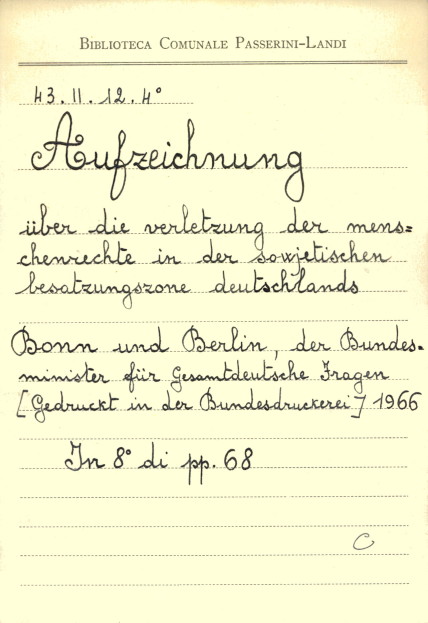 BIBLIOTECA COMUNALE PASSERINI-LANDI
43.II.12.4°
Aufzeichnung
über die verletzung der mens=
chenrechte in der sowjetischen
besatzungszone deutschlands
Bonn und Berlin, der Bundes=
minister für Gesamtdeutsche Fragen
[Gedruckt in der Bundesdruckerei] 1966
In 8° di pp. 68
C